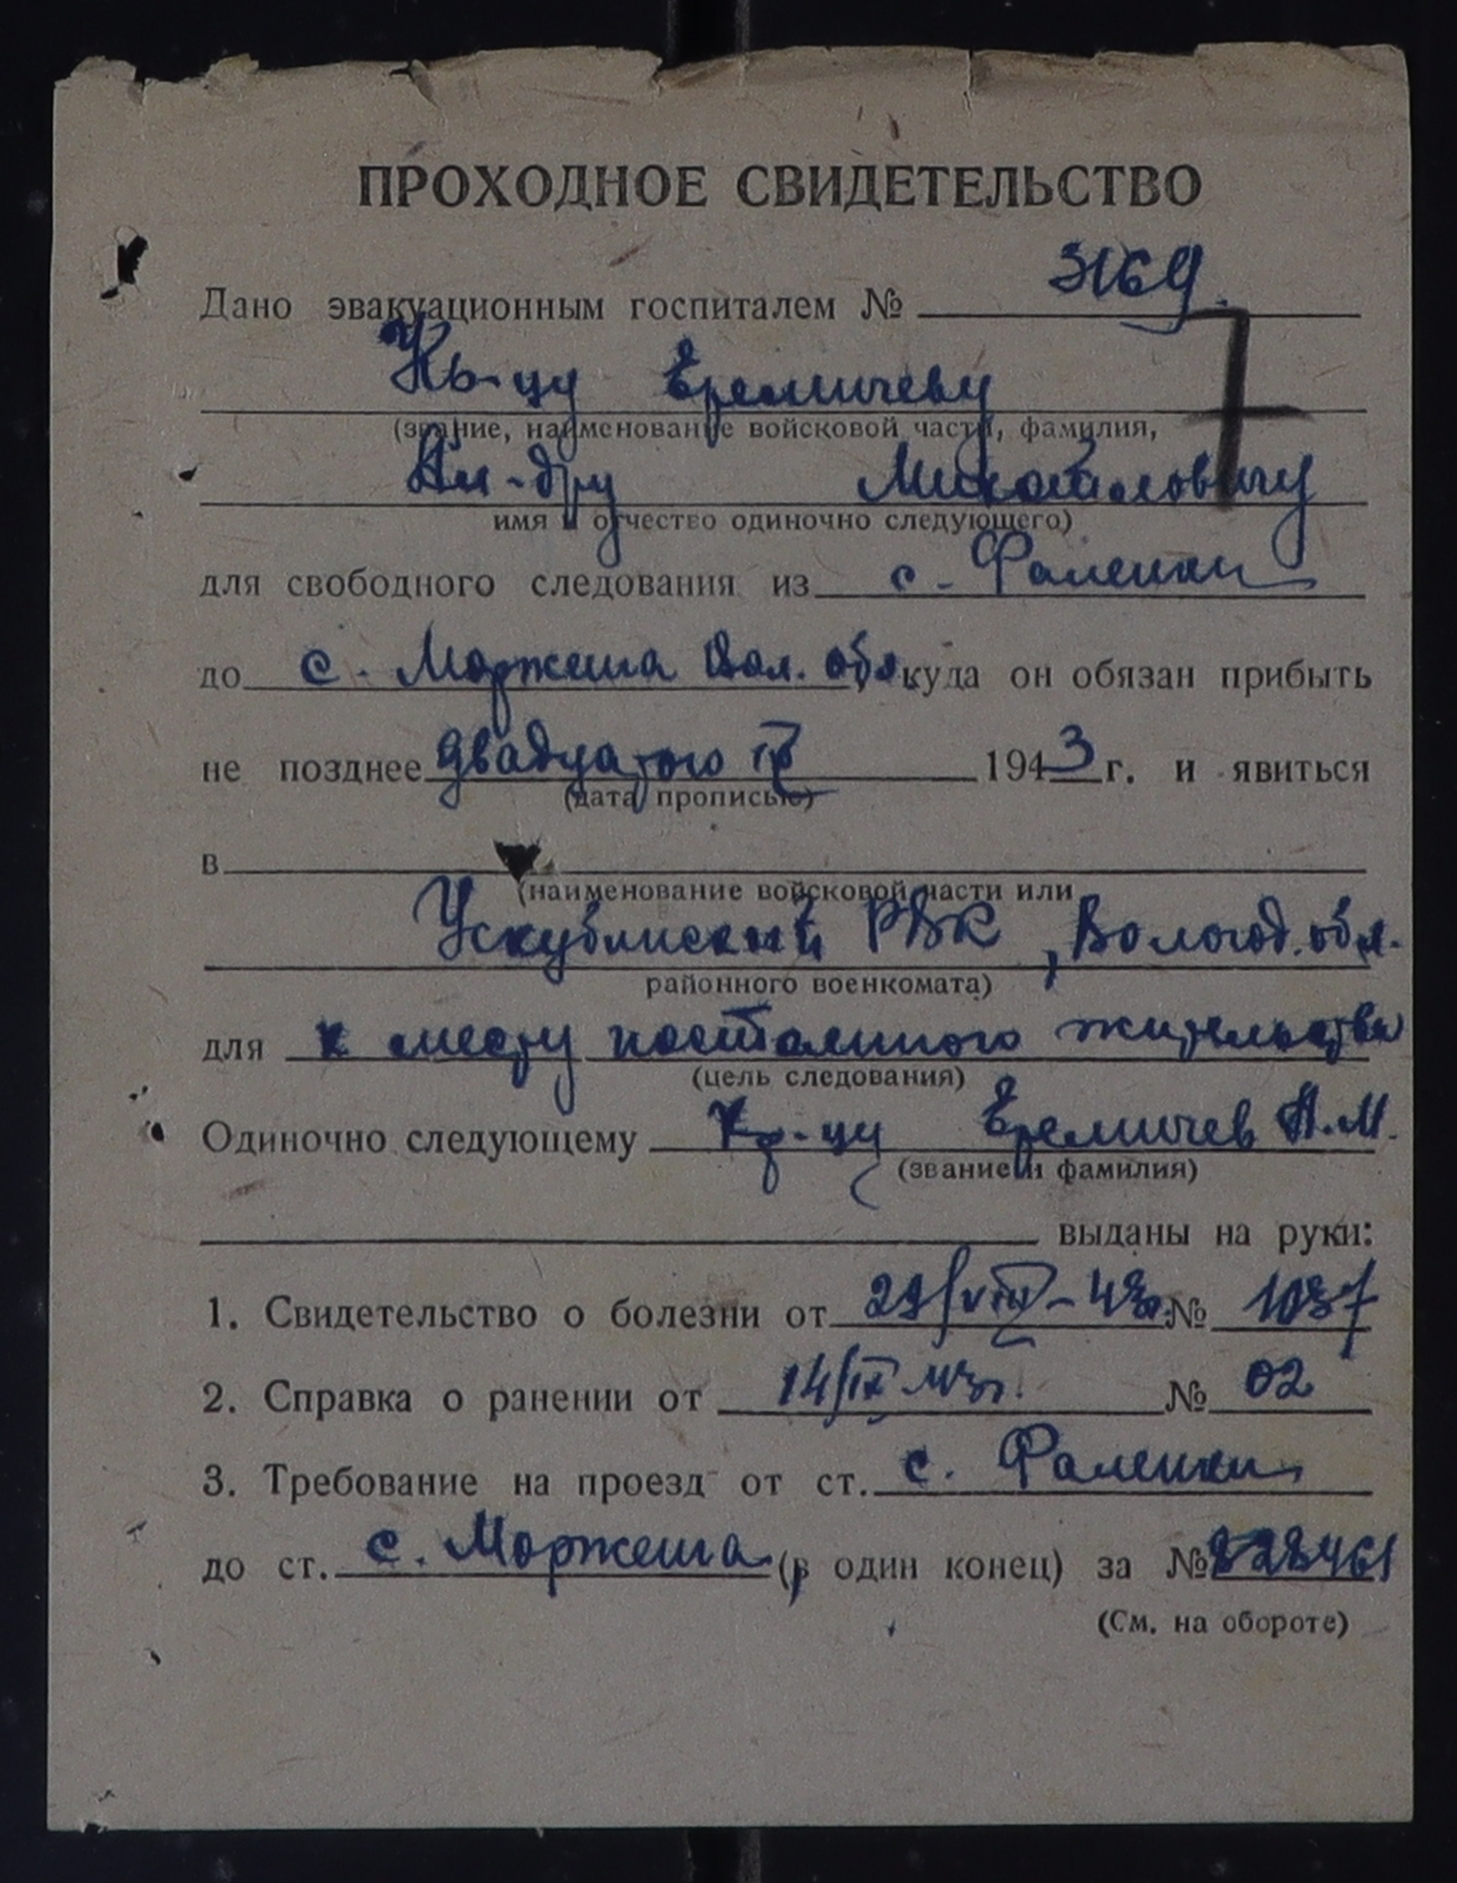 ПРОХОДНОЕ СВИДЕТЕЛЬСТВО
Дано эвакуационным госпиталем № 3169
Кр-цу Еремичеву
(звание, наименование войсковой части, фамилия,
Ал-дру Михайловичу
имя и отчество одиночно следующего)
для свободного следования из с. Фаленки
до с. Моржеша Вол. обл. куда он обязан прибыть
не позднее двадцатого IX 1943 г. и явиться
(дата прописью)
в
(наименование войсковой части или
РВК, Вологод. обл.
районного военкомата)
для к месту постоянного жительства
(цель следования)
Одиночно следующему Кр-цу Еремичев А.М.
(звание и фамилия)
выданы на руки:
1. Свидетельство о болезни от 29/VIII-43г. № 1037
2. Справка о ранении от 14/IX 43г. № 02
3. Требование на проезд от ст. с. Фаленки
до ст. с. Моржеша (в один конец) за № 228461
(См. на обороте)